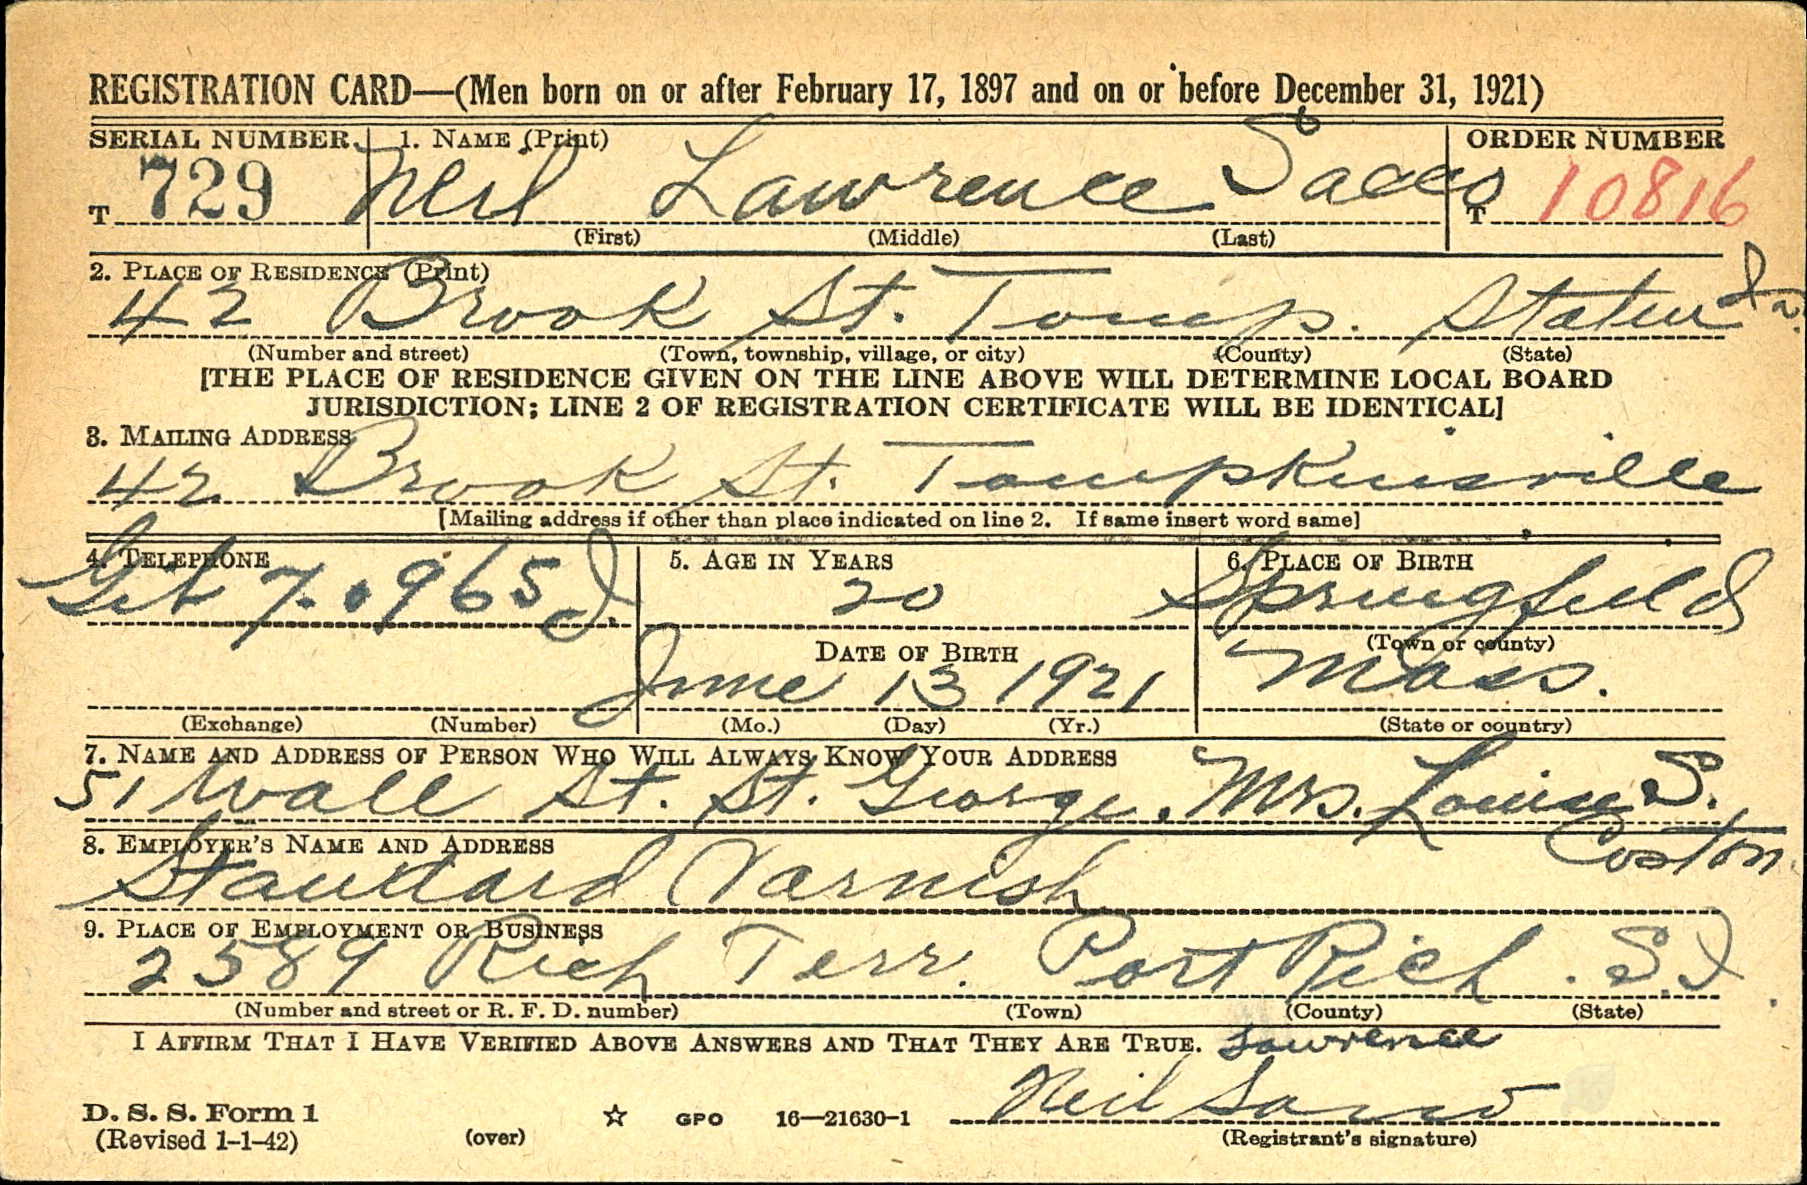 REGISTRATION CARD—(Men born on or after February 17, 1897 and on or before December 31, 1921)
SERIAL NUMBER 1. NAME (Print) ORDER NUMBER
T 729 Neil Lawrence Sacco T 10816
(First) (Middle) (Last)
2. PLACE OF RESIDENCE (Print)
42 Brook St. Tomp. Staten
(Number and street) (Town, township, village, or city) (County) (State)
[THE PLACE OF RESIDENCE GIVEN ON THE LINE ABOVE WILL DETERMINE LOCAL BOARD
JURISDICTION; LINE 2 OF REGISTRATION CERTIFICATE WILL BE IDENTICAL]
3. MAILING ADDRESS
42 Brook St. Tompkinsville
[Mailing address if other than place indicated on line 2. If same insert word same]
4. TELEPHONE 5. AGE IN YEARS 6. PLACE OF BIRTH
Gib 7-0965 J. 20 Springfield
(Town or county)
DATE OF BIRTH
June 13 1921 Mass.
(Exchange) (Number) (Mo.) (Day) (Yr.) (State or country)
7. NAME AND ADDRESS OF PERSON WHO WILL ALWAYS KNOW YOUR ADDRESS
51 Wall St. St. George. Mrs. Louise S.
Coston
8. EMPLOYER'S NAME AND ADDRESS
Standard Varnish
9. PLACE OF EMPLOYMENT OR BUSINESS
2589 Rich Terr. Port Rich. S.I.
(Number and street or R. F. D. number) (Town) (County) (State)
I AFFIRM THAT I HAVE VERIFIED ABOVE ANSWERS AND THAT THEY ARE TRUE.
Lawrence
Neil Sacco
D. S. S. Form 1
(Revised 1-1-42) (over) ☆ GPO 16—21630-1 (Registrant's signature)